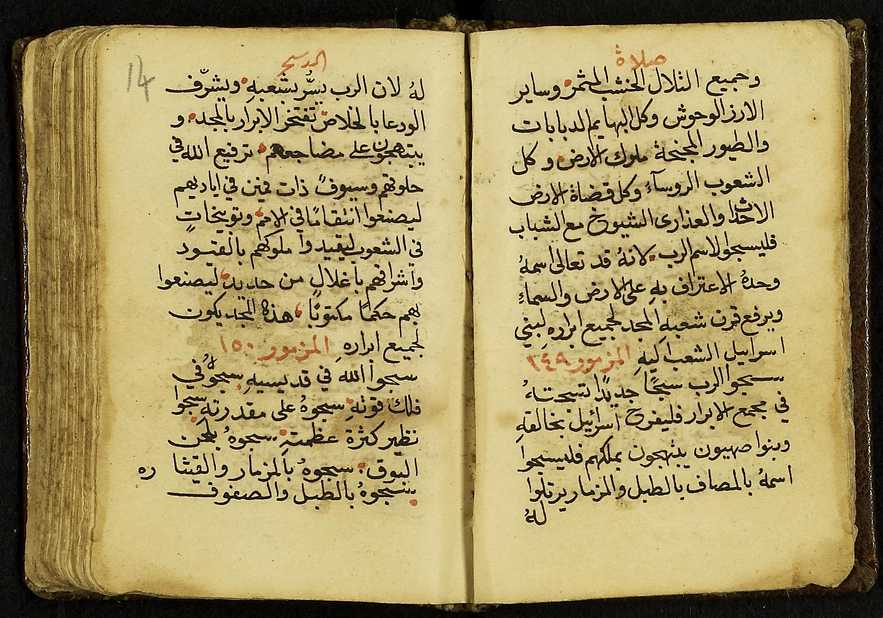 صلاة
وجميع التلال الخشب المثمر وساير
الارز الوحوش وكل البهايم الدبابات
والطيور المجنحة ملوك الارض وكل
الشعوب الروسآء وكل قضاة الارض
الاحداث والعذارى الشيوخ مع الشباب
فليسبحوا لاسم الرب لانهُ قد تعالى اسمهُ
وحدهُ الاعتراف بهِ على الارض والسماءِ
ويرفع قرن شعبهِ المجد لجميع ابرارهِ لبني
اسراييل الشعب ليهِ المزمور ١٤٩
سبحوا الرب سبحًا جديدًا تسبحتهُ
في مجمع الابرار فليفرح اسرائيل بخالقهِ
وبنوا صهيون يبتهجون بملكهم فليسبحوا
اسمهُ بالمصاف بالطبل والمزمار يرتلوا
لهُ
السحر
14
لهُ لان الرب يسُّر بشعبهِ ويشرّف
الودعا بالخلاص تفتخر الابرار بالمجد و
يبتهجون على مضاجعهم ترفيع الله في
حلوقهم وسيوفٌ ذات فمين في اياديهم
ليصنعوا انتقامًا في الامم وتوبيخاتٍ
في الشعوب ليقيدوا ملوكهم بالقيود
واشرافهم باغلال من حديد ليصنعوا
بهم حكمًا مكتوبًا هذا المجد يكون
لجميع ابرارهِ المزمور ١٥٠
سبحوا الله في قديسيهِ سبحوهُ في
فلك قوتهِ سبحوهُ على مقدرتهِ سبحوا
نظير كثرة عظمتهِ سبحوهُ بلحن
البوق سبحوهُ بالمزمار والقيثاره
سبحوهُ بالطبل والصفوف